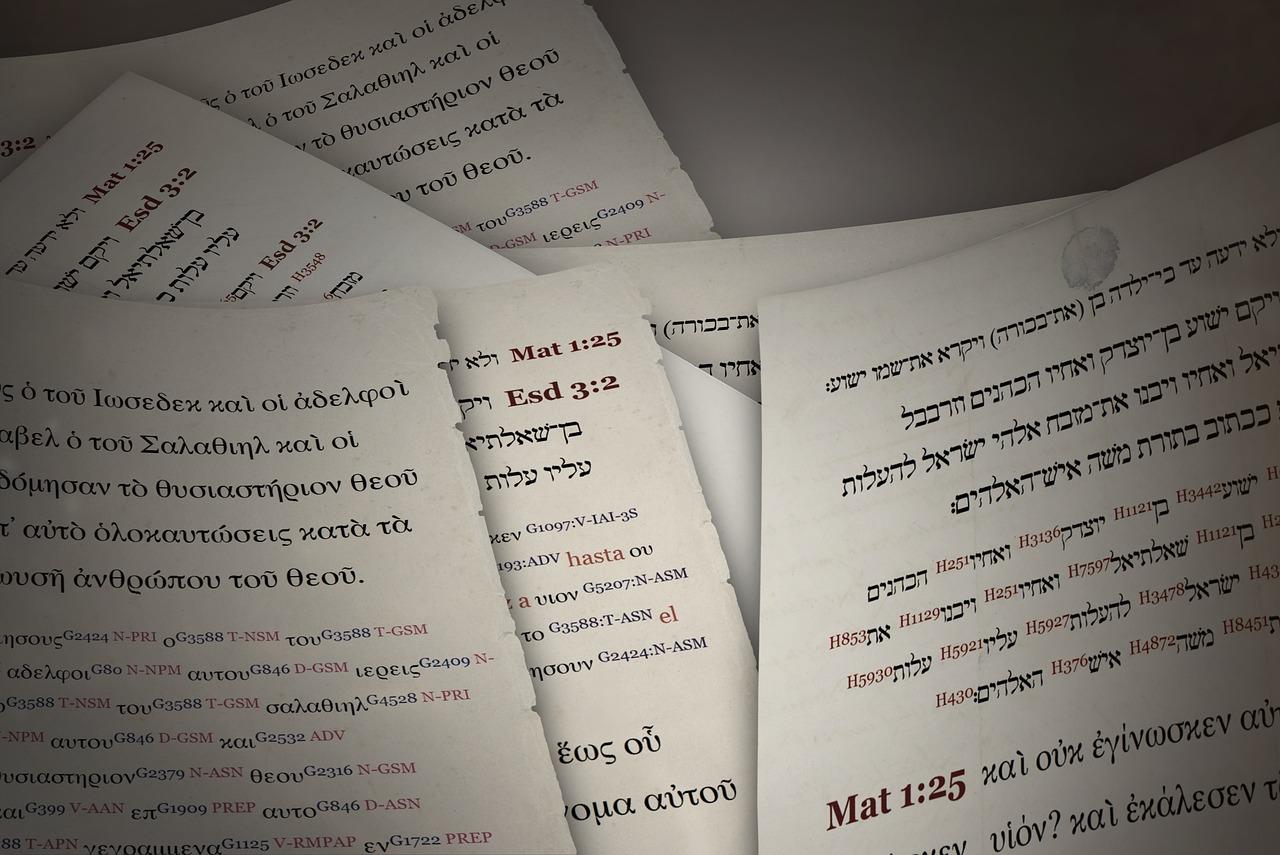 3:2
ὁ τοῦ Ιωσεδεκ καὶ οἱ
ὁ τοῦ Σαλαθιηλ καὶ οἱ
τὸ θυσιαστήριον θεοῦ
κατὰ τὰ
τοῦ θεοῦ.
τουG3588 T-GSM
D-GSM ιερειςG2409 N-
N-PRI
Mat 1:25 ולא ידעה עד
Esd 3:2 ויקם
בן־שאלתיאל
עליו עלות
Esd 3:2
H3548
ὁ τοῦ Ιωσεδεκ καὶ οἱ ἀδελφοὶ
ὁ τοῦ Σαλαθιηλ καὶ οἱ
τὸ θυσιαστήριον θεοῦ
αὐτὸ ὁλοκαυτώσεις κατὰ τὰ
ἀνθρώπου τοῦ θεοῦ.
G2424 N-PRI οG3588 T-NSM τουG3588 T-GSM
αδελφοιG80 N-NPM αυτουG846 D-GSM ιερειςG2409 N-
G3588 T-NSM τουG3588 T-GSM σαλαθιηλG4528 N-PRI
N-NPM αυτουG846 D-GSM καιG2532 ADV
G2379 N-ASN θεουG2316 N-GSM
G399 V-AAN επG1909 PREP αυτοG846 D-ASN
T-APN γεγραμμεναG1125 V-RMPAP ενG1722 PREP
Mat 1:25 ולא
Esd 3:2
עליו עלות
G1097:V-IAI-3S
ADV hasta ου
a υιον G5207:N-ASM
το G3588:T-ASN el
G2424:N-ASM
ἕως οὗ
αὐτοῦ
(את־בכורה)
ואחיו
ידעה עד כי־ילדה בן (את־בכורה) ויקרא את־שמו ישוע׃
ויקם ישוע בן־יוצדק ואחיו הכהנים וזרבבל
ואחיו ויבנו את־מזבח אלהי ישראל להעלות
ככתוב בתורת משה איש־האלהים׃
ישועH3442 בןH1121 יוצדקH3136 ואחיוH251 הכהנים
בןH1121 שאלתיאלH7597 ואחיוH251 ויבנוH1129 אתH853
ישראלH3478 להעלותH5927 עליוH5921 עלותH5930
H8451 משהH4872 אישH376 האלהים׃H430
Mat 1:25 καὶ οὐκ ἐγίνωσκεν
υἱόν? καὶ ἐκάλεσεν